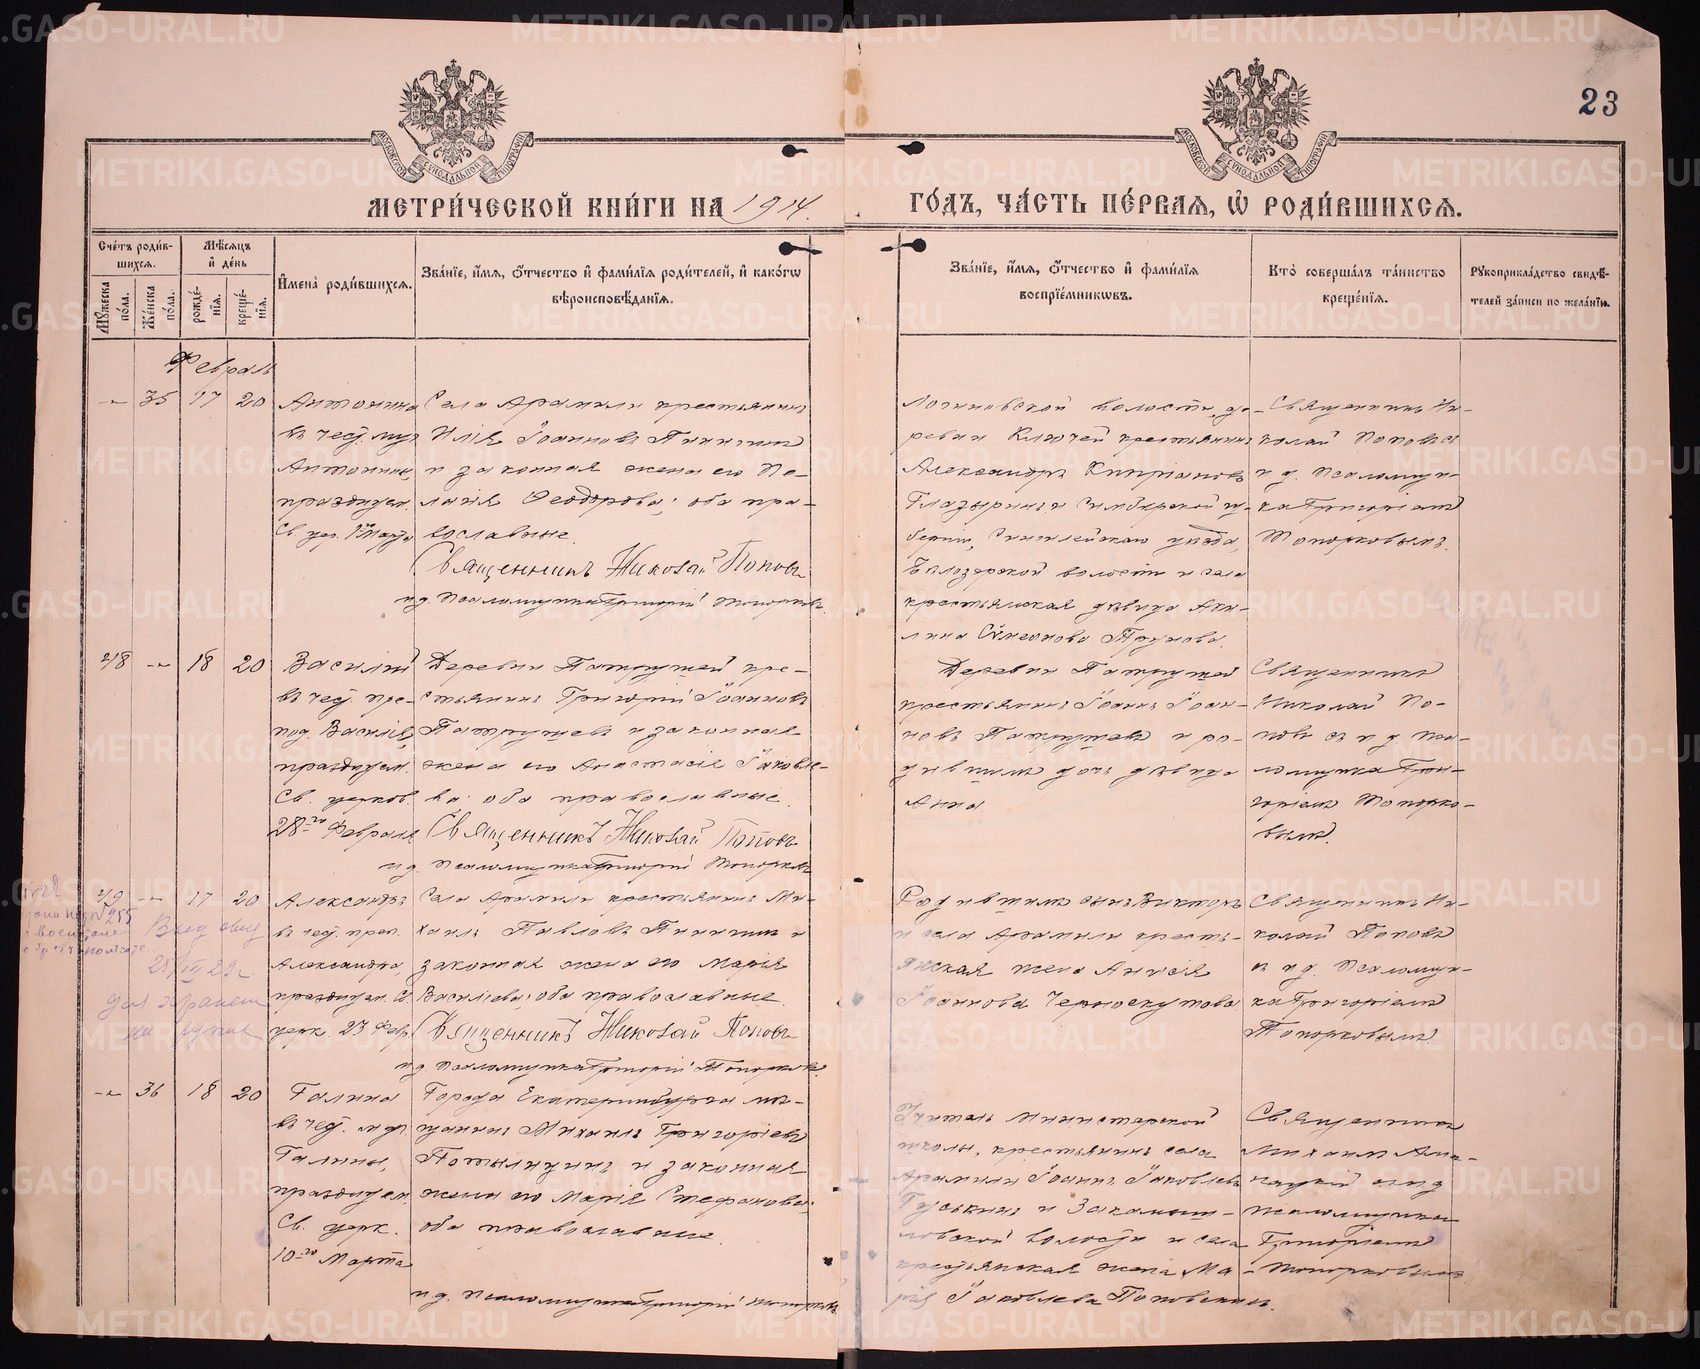 23
МЕТРИ́ЧЕСКОЙ КНИ́ГИ НА 1914. ГО́ДЪ, ЧА́СТЬ ПЕ́РВАѦ, Ѽ РОДИ́ВШИХСѦ.
Сче́тъ роди́в-
шихсѧ.
Мѣ́сѧцъ
и҆ де́нь
Мꙋ́жеска по́ла.
Же́нска по́ла.
рожде́-
нїѧ.
креще́-
нїѧ.
И҆мена̀ роди́вшихсѧ.
Зва́нїе, и҆́мѧ, ѻ҆́тчество и҆ фами́лїѧ роди́телей, и҆ како́гѡ
вѣроисповѣ́данїѧ.
Зва́нїе, и҆́мѧ, ѻ҆́тчество и҆ фами́лїѧ
воспрїе́мникѡвъ.
Кто̀ соверша́лъ та́инство
креще́нїѧ.
Рꙋкоприкла́дство свидѣ́-
телей за́писи по жела́нїю.
Февраль
35 17 20
Антонина
въ чес. муч.
Антонины,
празднуем.
Св. цер. 1го Марта
Села Арамили крестьянинъ
Илія Іоанновъ Пинигинъ
и законная жена его Пе-
лагія Ѳеодорова; оба пра-
вославные.
Священникъ Николай Поповъ
и д. псаломщика Григорій Топорковъ.
Логиновской волости, де-
ревни Ключей крестьянинъ
Александръ Кипріановъ
Глазыринъ и Симбирской гу-
берніи, Сингилейскаго уѣзда,
Бѣлозерской волости и села
крестьянская дѣвица Аки-
лина Симеонова Трунова.
Священникъ Ни-
колай Поповъ съ
и д. псаломщи-
ка Григоріемъ
Топорковымъ.
48 18 20
Василій
въ чес. пре-
под. Василія,
празднуем.
Св. церков.
28го Февраля
Деревни Патрушей кре-
стьянинъ Григорій Іоанновъ
Патрушевъ и законная
жена его Анастасія Іаковле-
ва; оба православные.
Священникъ Николай Поповъ
и д. псаломщика Григорій Топорковъ
Деревни Патрушей
крестьянинъ Іоаннъ Іоан-
новъ Патрушевъ и ро-
дившихъ дочь дѣвица
Анна.
Священникъ
Николай По-
повъ съ и д. пса-
ломщика Гри-
горіемъ Топорко-
вымъ.
49 17 20
Александръ
въ чес. преп.
Александра,
празднуем. Св.
церк. 23 Февр.
Села Арамили крестьянинъ Ми-
хаилъ Павловъ Пинигинъ и
законная жена его Марія
Василіева; оба православные.
Священникъ Николай Поповъ
и д. псаломщика Григорій Топорковъ.
Родившихъ сынъ Викторъ
и села Арамили кресть-
янская жена Анисія
Іоаннова Черноскутова
Священникъ Ни-
колай Поповъ
съ и д. псаломщи-
ка Григоріемъ
Топорковымъ.
36 18 20
Галина
въ чес. муч.
Галины,
празднуем.
Св. церк.
10го Марта
Города Екатеринбурга мѣ-
щанинъ Михаилъ Григоріевъ
Потылицинъ и законная
жена его Марія Стефанова;
оба православные.
и д. псаломщика Григорій Топорковъ.
Учитель министерской
школы, крестьянинъ села
Арамили Іоаннъ Іаковлевъ
и
волости и села
крестьянская жена Ма-
рія Іаковлева
Священникъ
Михаилъ
съ и д.
псаломщика
Григоріемъ
Топорковымъ